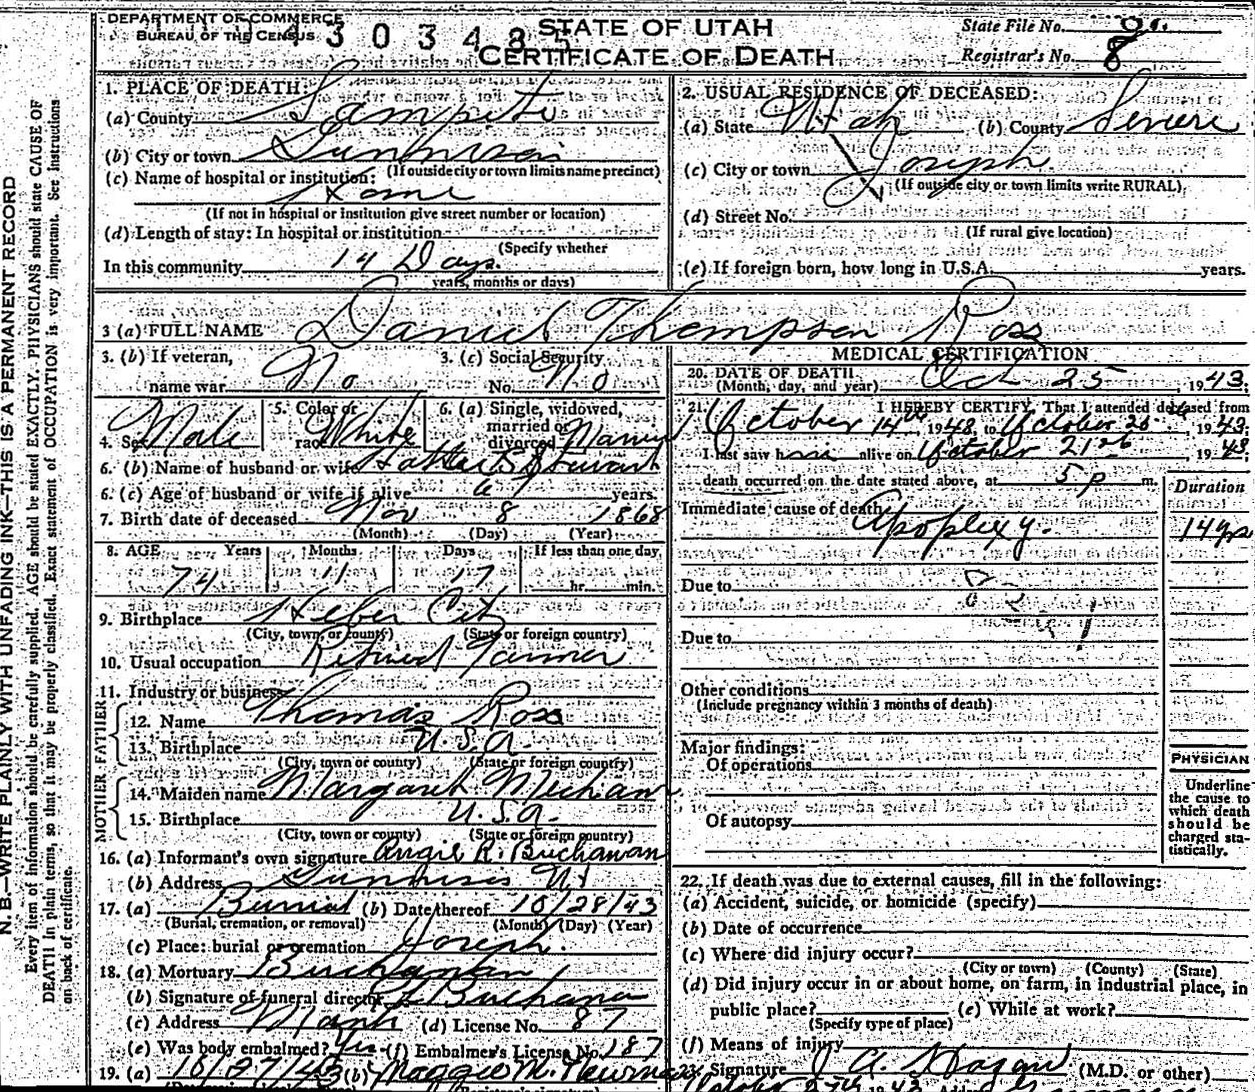 DEPARTMENT OF COMMERCE
BUREAU OF THE CENSUS
4303485
STATE OF UTAH
CERTIFICATE OF DEATH
State File No.
Registrar's No. 8
N. B.—WRITE PLAINLY WITH UNFADING INK—THIS IS A PERMANENT RECORD
Every item of information should be carefully supplied. AGE should be stated EXACTLY. PHYSICIANS should state CAUSE OF
DEATH in plain terms, so that it may be properly classified. Exact statement of OCCUPATION is very important. See instructions
on back of certificate.
1. PLACE OF DEATH:
(a) County Sanpete
(b) City or town Gunnison
(If outside city or town limits name precinct)
(c) Name of hospital or institution:
Home
(If not in hospital or institution give street number or location)
(d) Length of stay: In hospital or institution
(Specify whether
In this community 14 Days.
years, months or days)
2. USUAL RESIDENCE OF DECEASED:
(a) State Utah (b) County Sevier
(c) City or town Joseph
(If outside city or town limits write RURAL)
(d) Street No.
(If rural give location)
(e) If foreign born, how long in U.S.A. years.
3 (a) FULL NAME Daniel Thompson Ross
3. (b) If veteran,
name war No
3. (c) Social Security
No. No
4. Sex Male
5. Color or
race White
6. (a) Single, widowed,
married or
divorced Married
6. (b) Name of husband or wife Stewart
6. (c) Age of husband or wife if alive years.
7. Birth date of deceased Nov 8 1868
(Month) (Day) (Year)
8. AGE Years Months Days If less than one day
74 11 17 hr. min.
9. Birthplace Heber City
(City, town, or county) (State or foreign country)
10. Usual occupation Retired Farmer
11. Industry or business
FATHER
12. Name Thomas Ross
13. Birthplace U.S.A.
(City, town or county) (State or foreign country)
MOTHER
14. Maiden name Margaret Mecham
15. Birthplace U.S.A.
(City, town or county) (State or foreign country)
16. (a) Informant's own signature Angie R. Buchanan
(b) Address Gunnison Ut
17. (a) Burial (b) Date thereof 10/28/43
(Burial, cremation, or removal) (Month) (Day) (Year)
(c) Place: burial or cremation Joseph.
18. (a) Mortuary Buchanan
(b) Signature of funeral director Buchanan
(c) Address Manti (d) License No. 87
(e) Was body embalmed? Yes (f) Embalmer's License No. 187
19. (a) 10/27/43 (b) Maggie M.
MEDICAL CERTIFICATION
20. DATE OF DEATH
(Month, day, and year) Oct 25, 1943;
21. I HEREBY CERTIFY, That I attended deceased from
October 14th 1943, to October 25 1943;
I last saw him alive on October 1943;
death occurred on the date stated above, at 5 p m.
Duration
Immediate cause of death
Apoplexy.
Due to
Due to
Other conditions
(Include pregnancy within 3 months of death)
Major findings:
Of operations
Of autopsy
PHYSICIAN
Underline
the cause to
which death
should be
charged sta-
tistically.
22. If death was due to external causes, fill in the following:
(a) Accident, suicide, or homicide (specify)
(b) Date of occurrence
(c) Where did injury occur?
(City or town) (County) (State)
(d) Did injury occur in or about home, on farm, in industrial place, in
public place? (e) While at work?
(Specify type of place)
(f) Means of injury
23. Signature J. A. Hagan (M.D. or other)